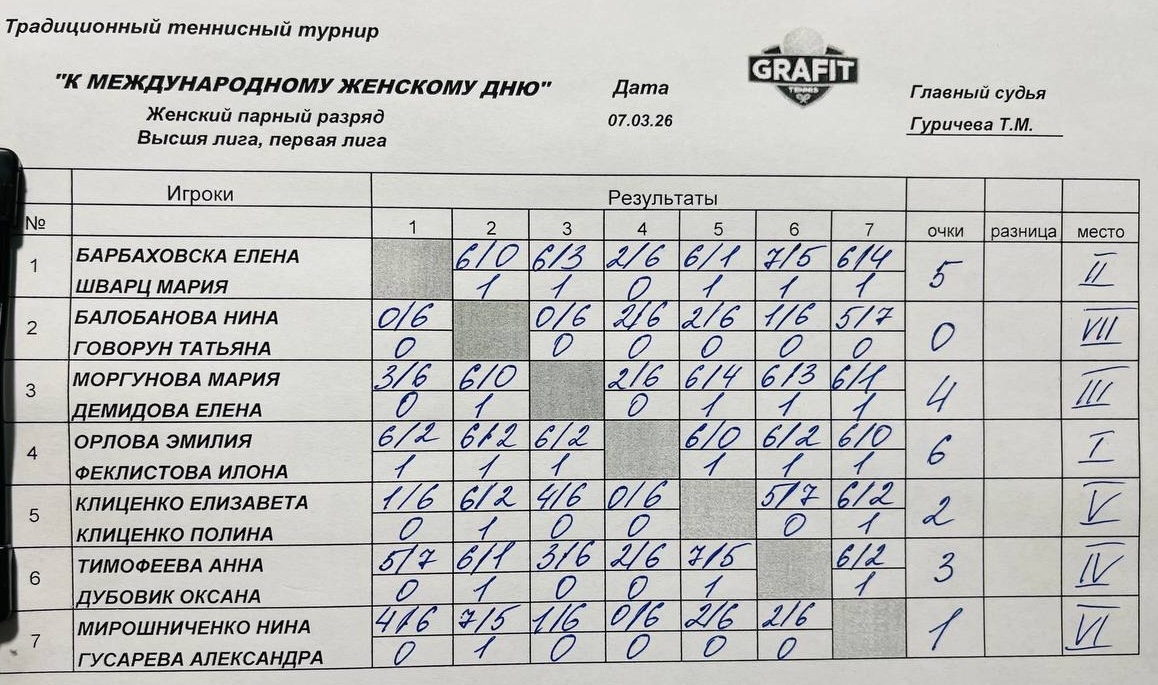 Традиционный теннисный турнир
"К МЕЖДУНАРОДНОМУ ЖЕНСКОМУ ДНЮ"
Женский парный разряд
Высшя лига, первая лига
Дата
07.03.26
GRAFIT
TENNIS
Главный судья
Гуричева Т.М.
Игроки Результаты
№ 1 2 3 4 5 6 7 очки разница место
1 БАРБАХОВСКА ЕЛЕНА 6/0 6/3 2/6 6/1 7/5 6/4 5 II
ШВАРЦ МАРИЯ 1 1 0 1 1 1
2 БАЛОБАНОВА НИНА 0/6 0/6 2/6 2/6 1/6 5/7 0 VII
ГОВОРУН ТАТЬЯНА 0 0 0 0 0 0
3 МОРГУНОВА МАРИЯ 3/6 6/0 2/6 6/4 6/3 6/1 4 III
ДЕМИДОВА ЕЛЕНА 0 1 0 1 1 1
4 ОРЛОВА ЭМИЛИЯ 6/2 6/2 6/2 6/0 6/2 6/0 6 I
ФЕКЛИСТОВА ИЛОНА 1 1 1 1 1 1
5 КЛИЦЕНКО ЕЛИЗАВЕТА 1/6 6/2 4/6 0/6 5/7 6/2 2 V
КЛИЦЕНКО ПОЛИНА 0 1 0 0 0 1
6 ТИМОФЕЕВА АННА 5/7 6/1 3/6 2/6 7/5 6/2 3 IV
ДУБОВИК ОКСАНА 0 1 0 0 1 1
7 МИРОШНИЧЕНКО НИНА 4/6 7/5 1/6 0/6 2/6 2/6 1 VI
ГУСАРЕВА АЛЕКСАНДРА 0 1 0 0 0 0